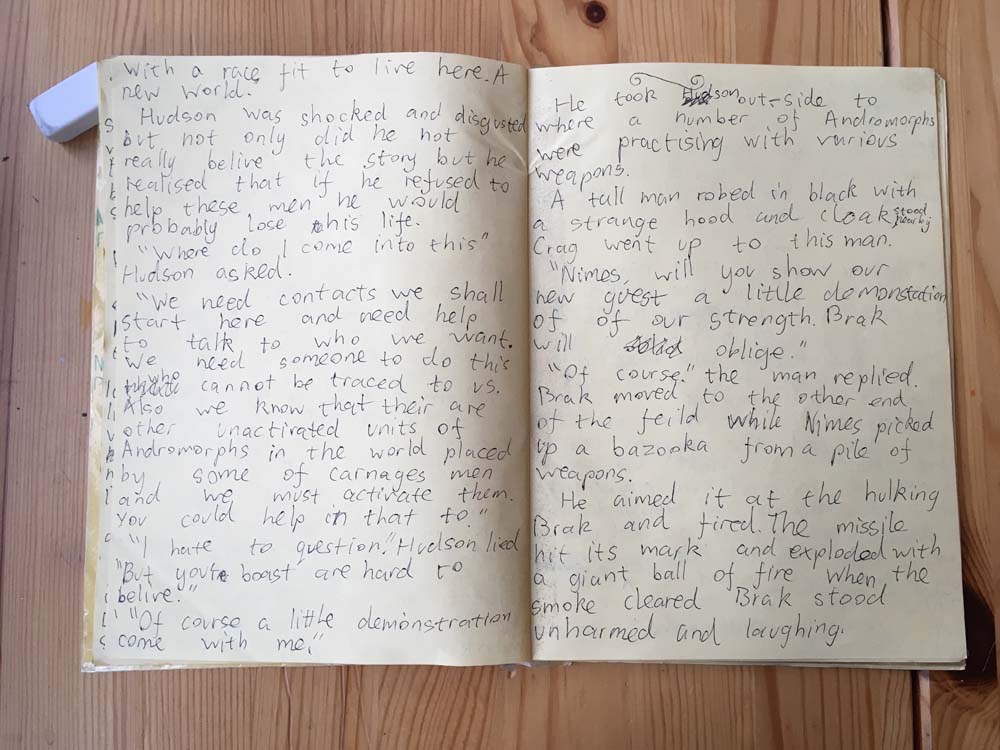 with a race fit to live here. A
new world."
Hudson was shocked and disgusted
but not only did he not
really belive the story but he
realised that if he refused to
help these men he would
probably lose his life.
"Where do I come into this"
Hudson asked.
"We need contacts we shall
start here and need help
to talk to who we want.
We need someone to do this
who cannot be traced to us.
Also we know that their are
other unactivated units of
Andromorphs in the world placed
by some of carnages men
and we must activate them.
You could help in that to."
"I hate to question." Hudson lied
"But your boast are hard to
belive."
"Of course a little demonstration
come with me."
He took Hudson out-side to
where a number of Andromorphs
were practising with various
weapons.
A tall man robed in black with
a strange hood and cloak stood nearby
Crag went up to this man.
"Nimes, will you show our
new guest a little demonstation
of of our strength. Brak
will oblige."
"Of course." the man replied.
Brak moved to the other end
of the feild while Nimes picked
up a bazooka from a pile of
weapons.
He aimed it at the hulking
Brak and fired. The missile
hit its mark and exploded with
a giant ball of fire when, the
smoke cleared Brak stood
unharmed and laughing.